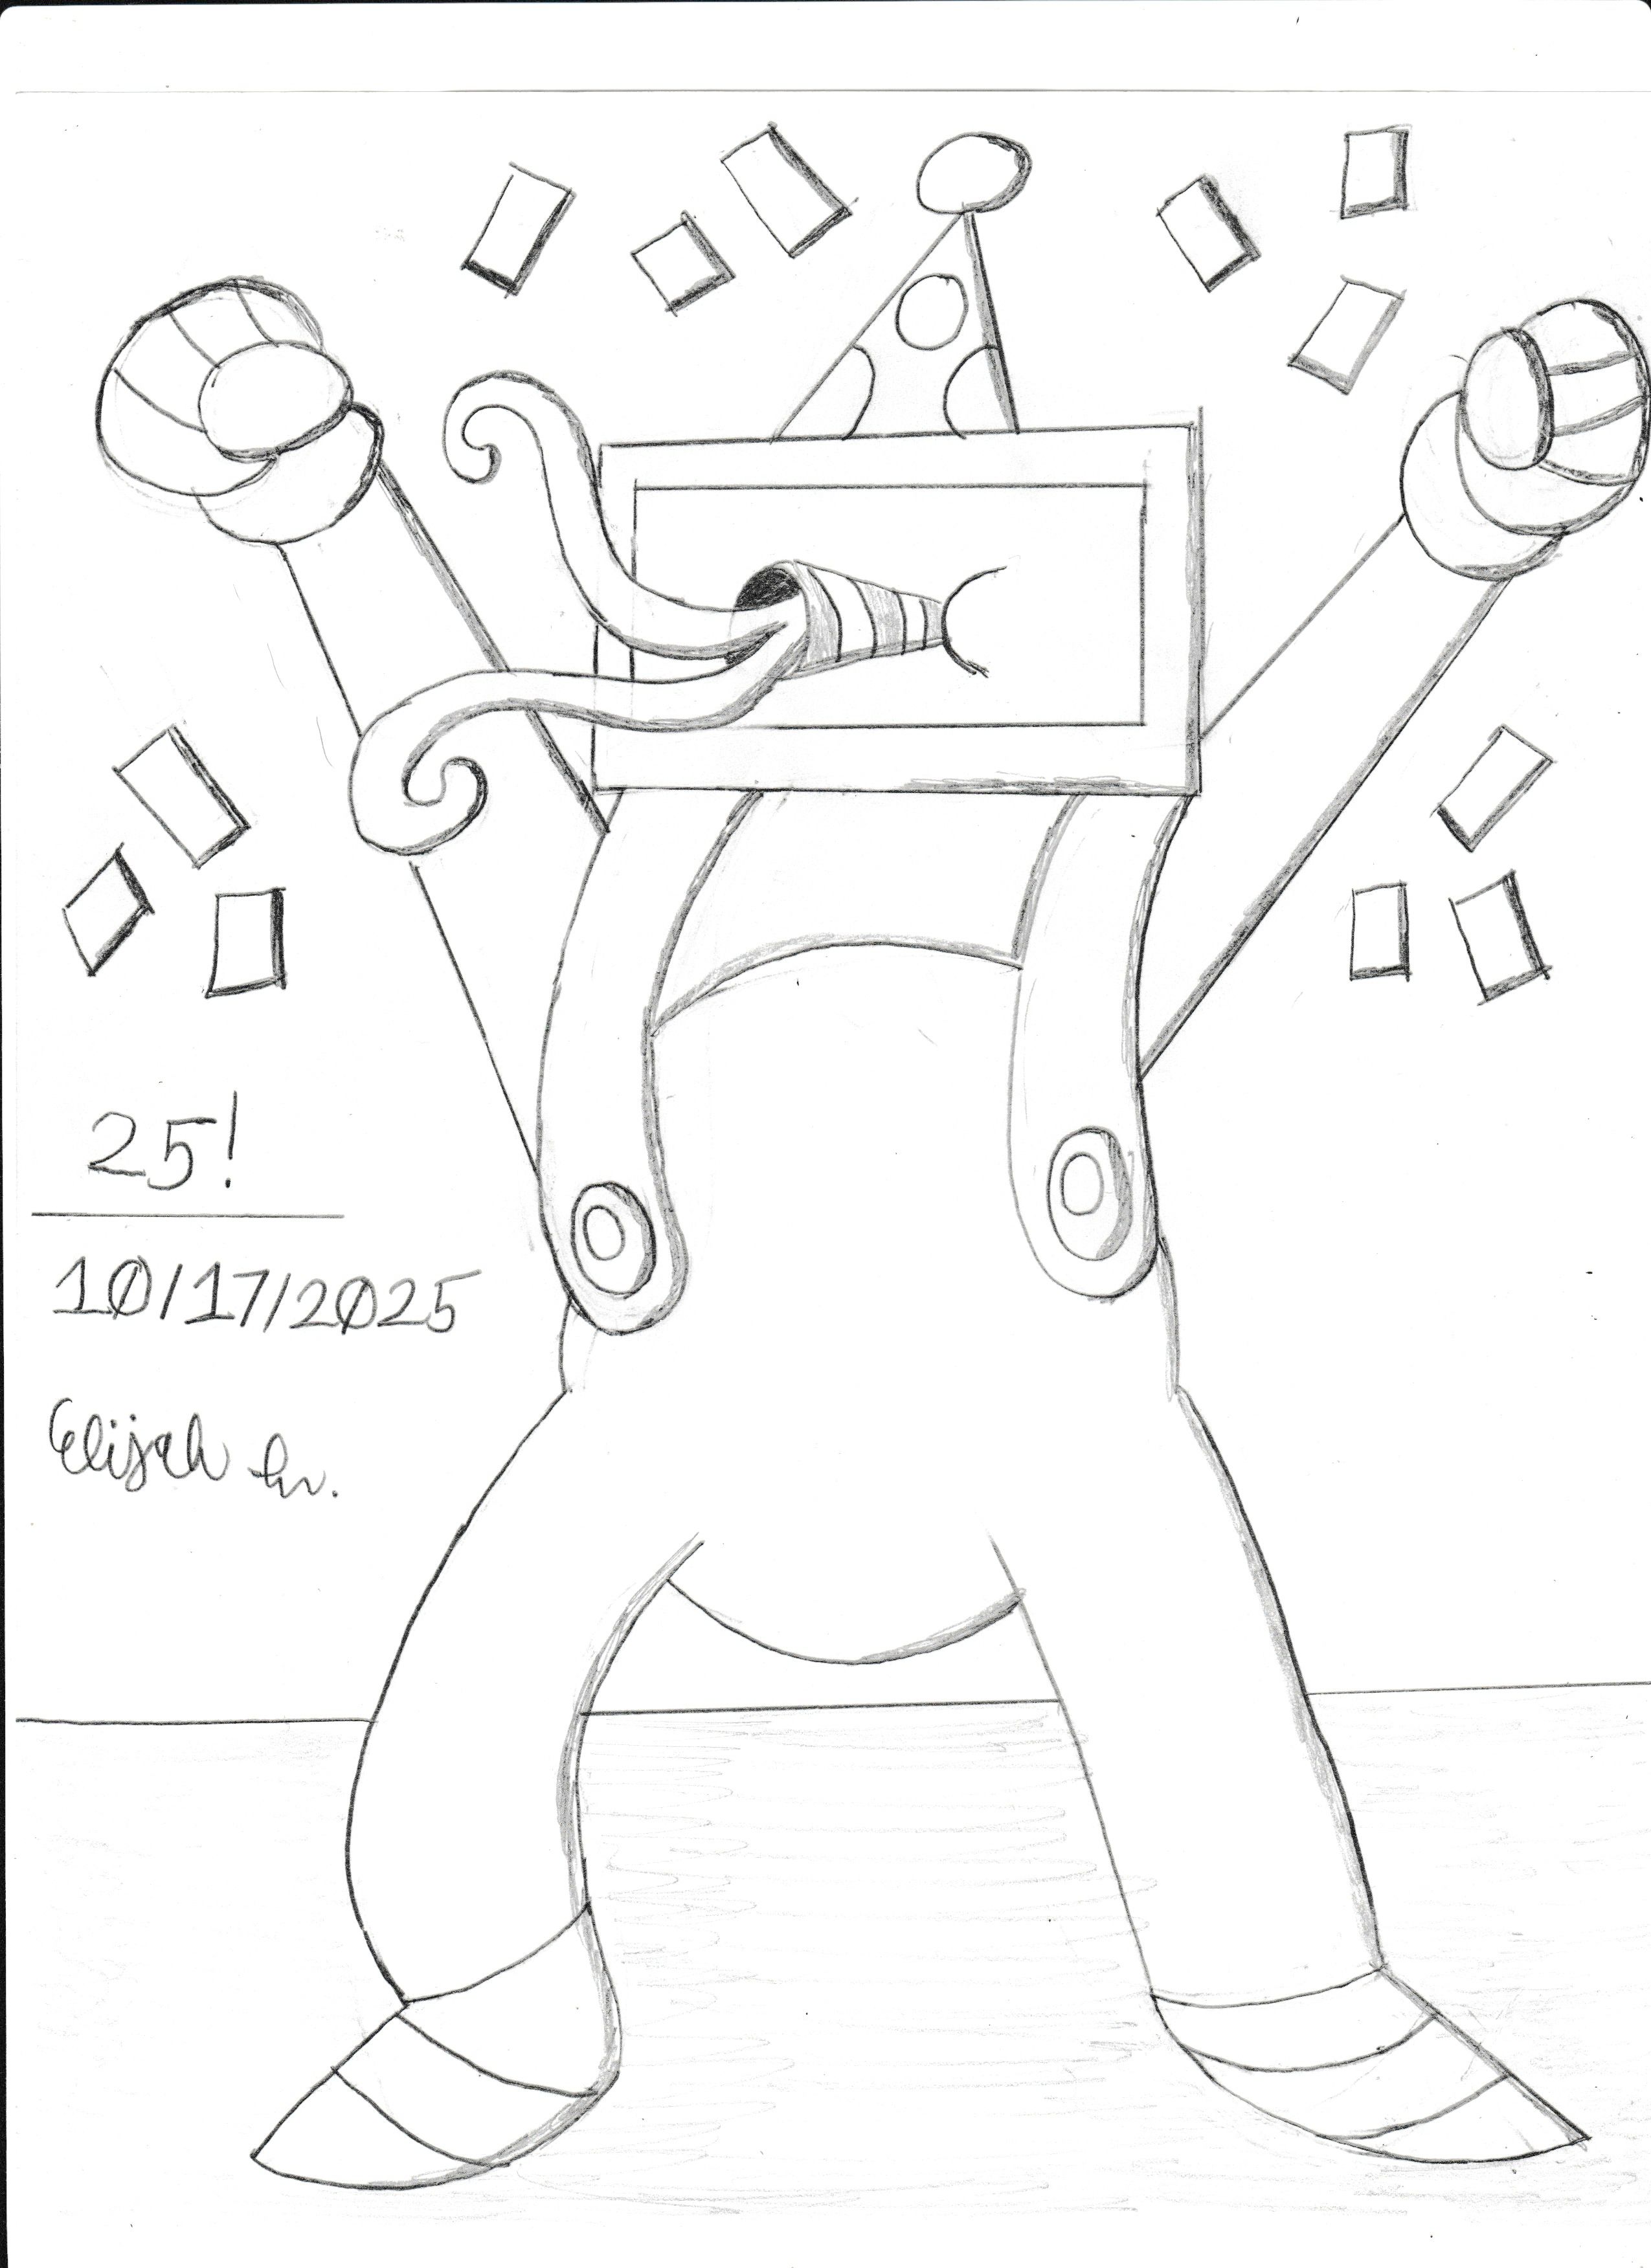 25!
10/17/2025
Elijah